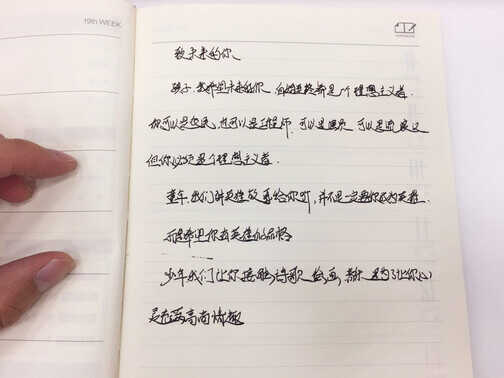 19th WEEK
致未来的你
孩子，我希望未来的你 自始至终都是一个理想主义者.
你可以是农民，也可以是工程师，可以是演员 可以是流浪汉
但你必须是个理想主义者.
童年，我们讲英雄故事给你听，并不是一定要你成为英雄.
而是希望你有英雄的品格
少年我们让你接触诗歌 绘画，音乐 是为了让你心
灵充满高尚情趣